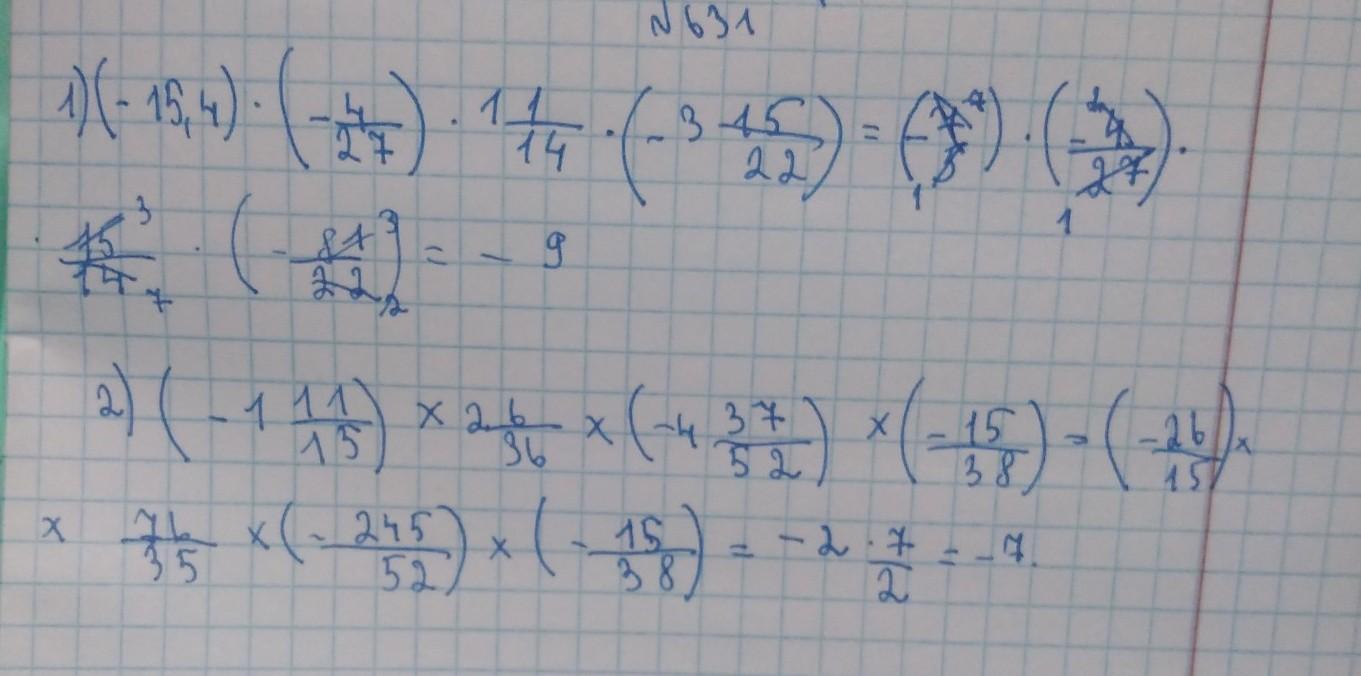 №631
1) (-15,4) · (-4/27) · 1 1/14 · (-3 15/22) = (-77/5) · (-4/27) ·
· 15/14 · (-81/22) = - 9
2) (-1 11/15) × 2 6/36 × (-4 37/52) × (-15/38) = (-26/15) ×
× 76/35 × (-245/52) × (-15/38) = -2 · 7/2 = -7.